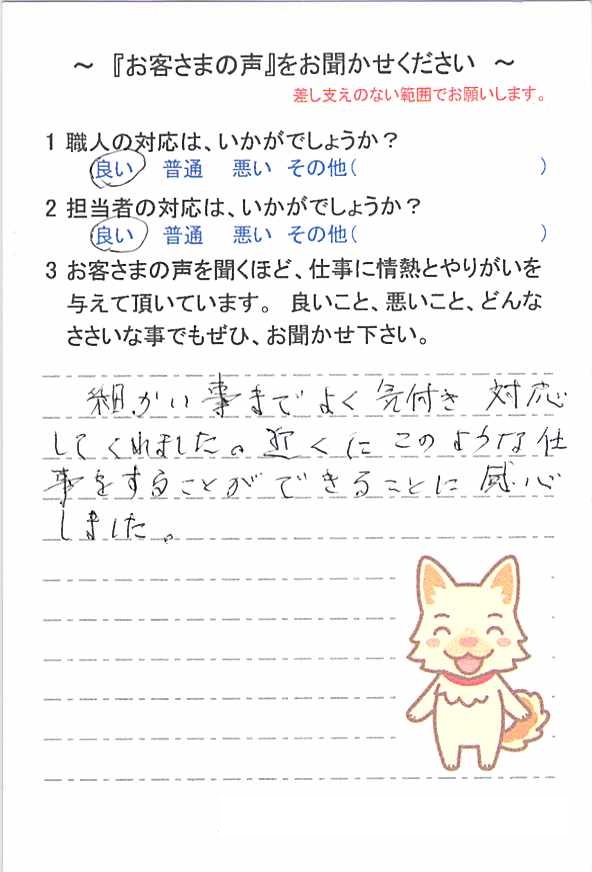 ～ 『お客さまの声』をお聞かせください ～
差し支えのない範囲でお願いします。
1 職人の対応は、いかがでしょうか？
良い 普通 悪い その他( )
2 担当者の対応は、いかがでしょうか？
良い 普通 悪い その他( )
3 お客さまの声を聞くほど、仕事に情熱とやりがいを
与えて頂いています。 良いこと、悪いこと、どんな
ささいな事でもぜひ、お聞かせ下さい。
細かい事までよく気付き 対応
してくれました。近くにこのような仕
事をすることができることに感心
しました。